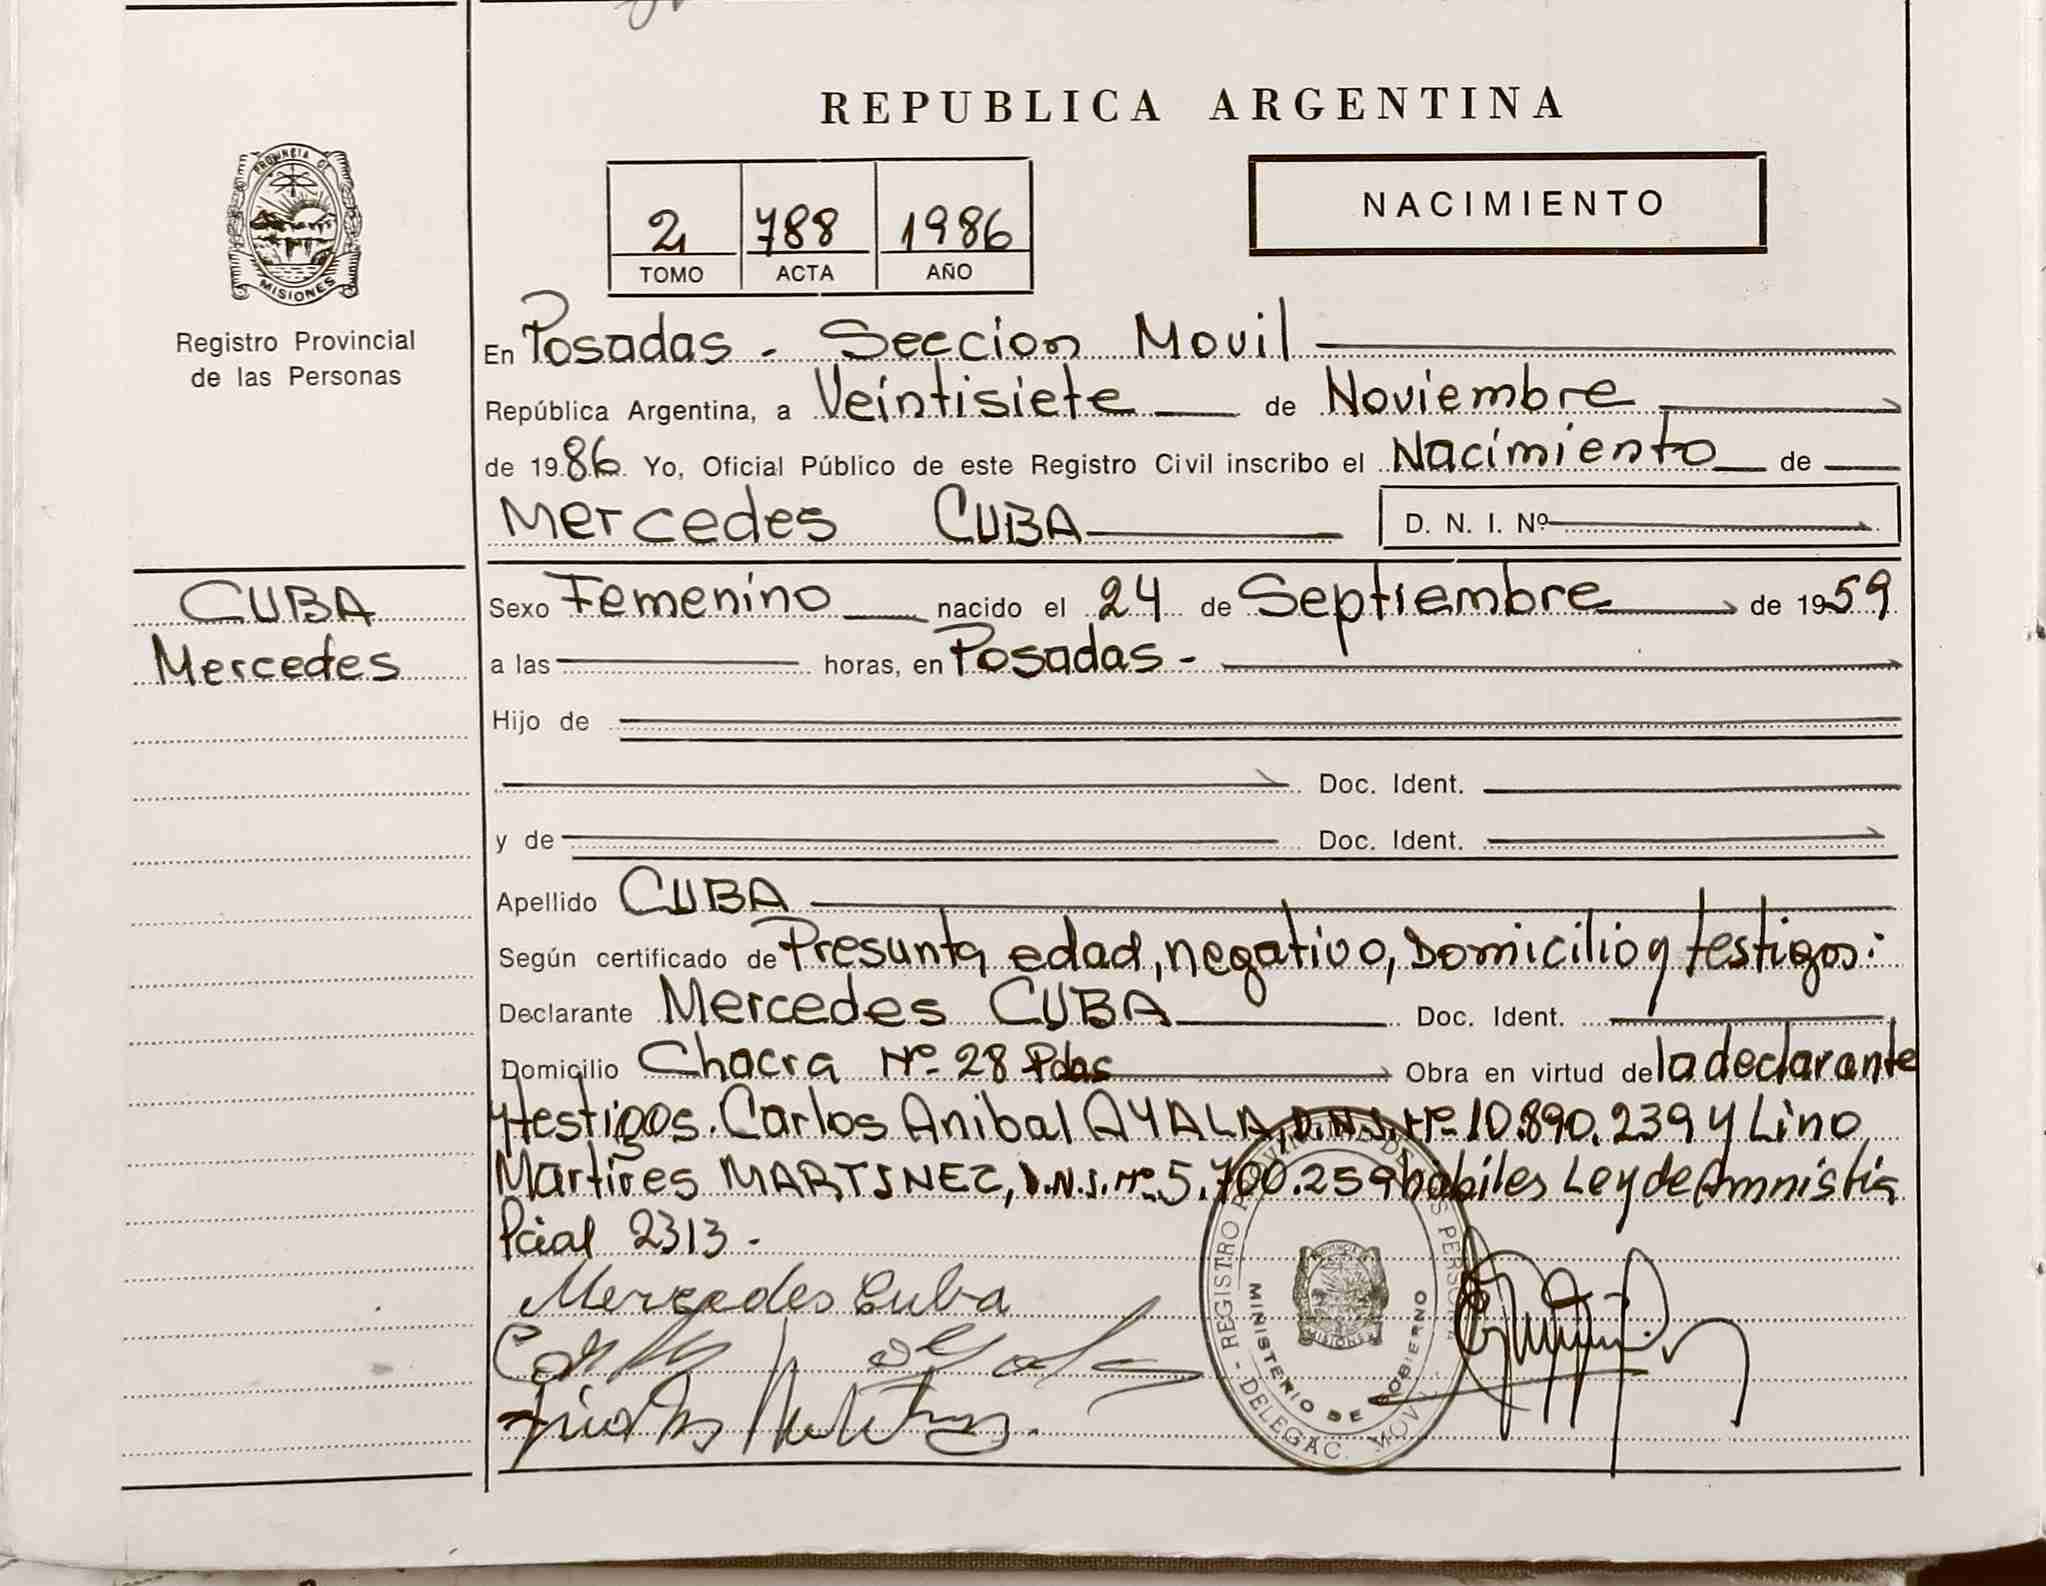 REPUBLICA ARGENTINA
PROVINCIA DE
MISIONES
Registro Provincial
de las Personas
2 788 1986
TOMO ACTA AÑO
NACIMIENTO
En Posadas - Seccion Movil
República Argentina, a Veintisiete de Noviembre
de 1986 Yo, Oficial Público de este Registro Civil inscribo el Nacimiento de
Mercedes CUBA D. N. I. Nº
CUBA
Mercedes
Sexo Femenino nacido el 24 de Septiembre de 1959
a las horas, en Posadas -
Hijo de
Doc. Ident.
y de Doc. Ident.
Apellido CUBA
Según certificado de Presunta edad, negativo, Domicilio y testigos:
Declarante Mercedes CUBA Doc. Ident.
Domicilio Chacra Nº 28 Pdas Obra en virtud de la declarante
y testigos. Carlos Anibal AYALA, D.N.I. Nº 10.890.239 y Lino
Martires MARTINEZ, D.N.I. Nº 5.700.259 habiles Ley de Amnistia
Pcial 2313 -
Mercedes Cuba
REGISTRO PROVINCIAL DE LAS PERSONAS - DELEGAC. MOVIL -
MINISTERIO DE GOBIERNO
MISIONES